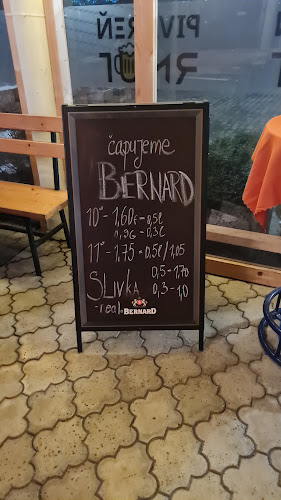 PIVÁREŇ
čapujeme
BERNARD
10° - 1,60€ - 0,5l
- 0,3l
11° - 1,75 - 0,5l / 1,05
SLIVKA 0,5 - 1,70
0,3 - 1,0
- real -
BERNARD